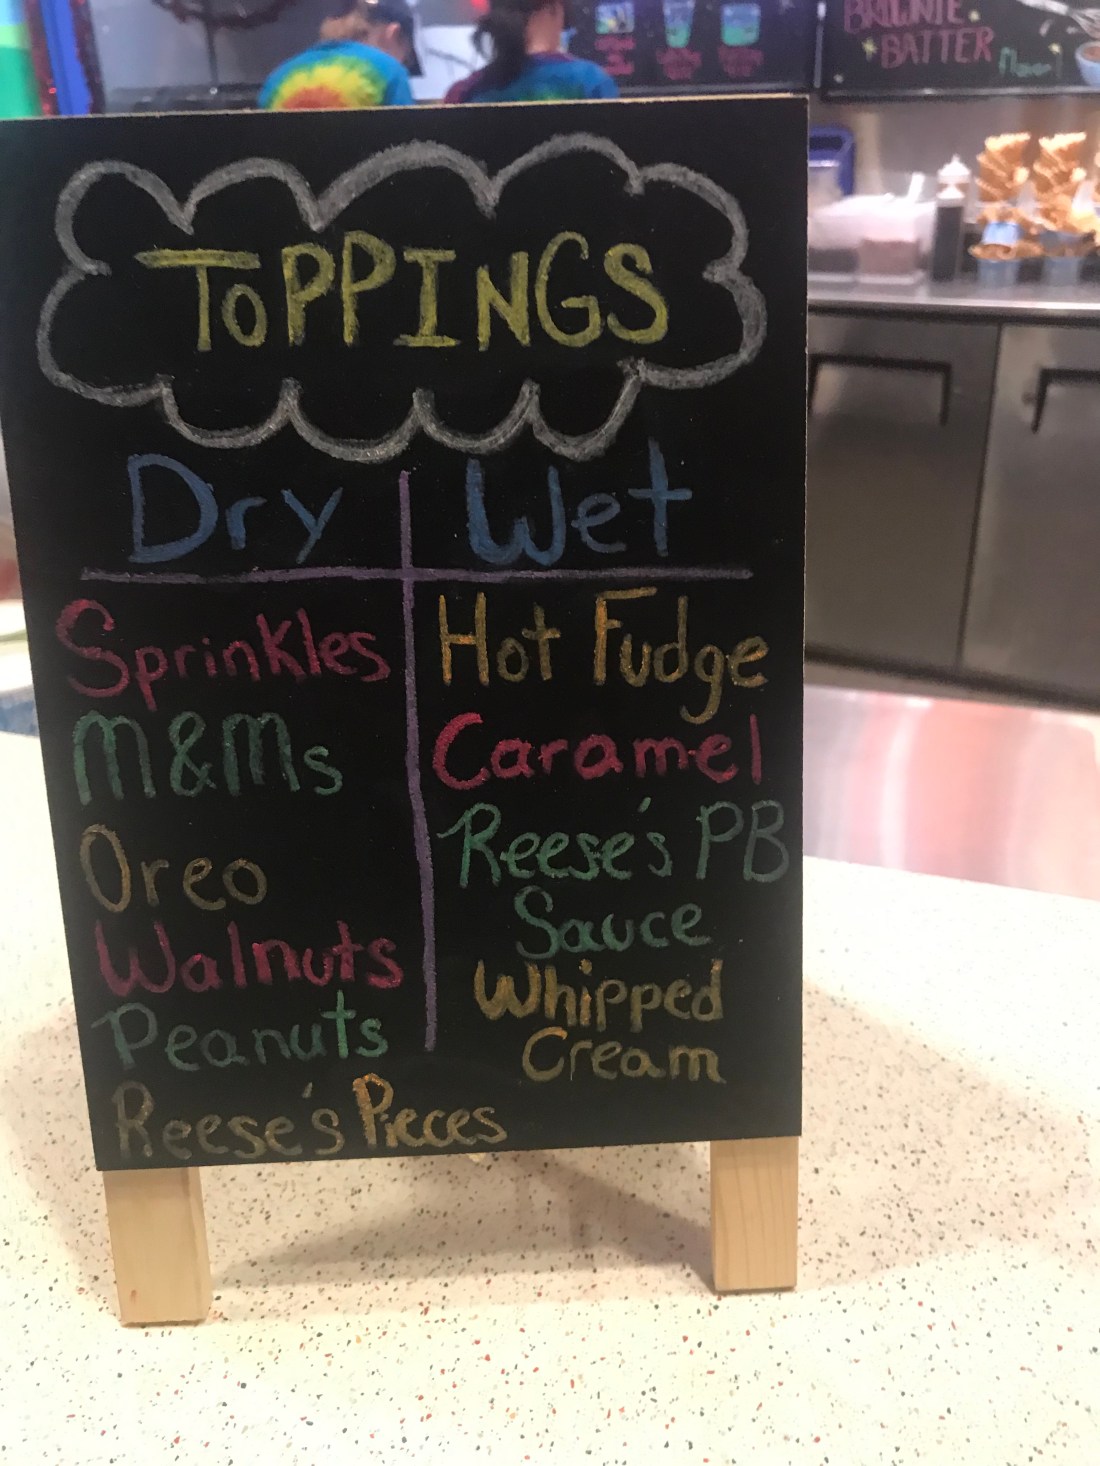 BROWNIE
BATTER
TOPPINGS
Dry Wet
Sprinkles Hot Fudge
M&Ms Caramel
Oreo Reese's PB
Walnuts Sauce
Peanuts Whipped
Cream
Reese's Pieces